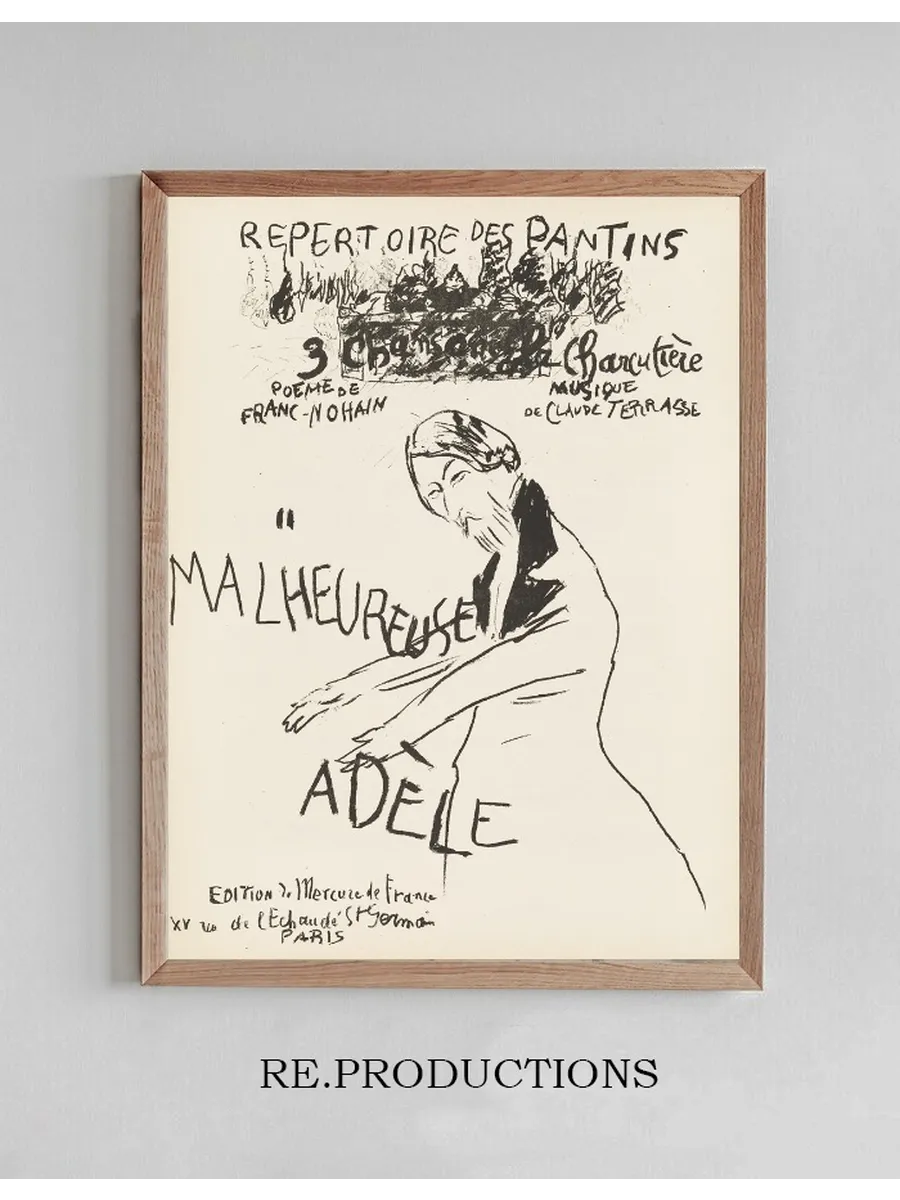 REPERTOIRE DES PANTINS
3 Chansons à la Charcutière
POEME DE
FRANC-NOHAIN
MUSIQUE
DE CLAUDE TERRASSE
"
MALHEUREUSE
ADÈLE
EDITION du Mercure de France
XV rue de l'Echaudé St Germain
PARIS
RE.PRODUCTIONS